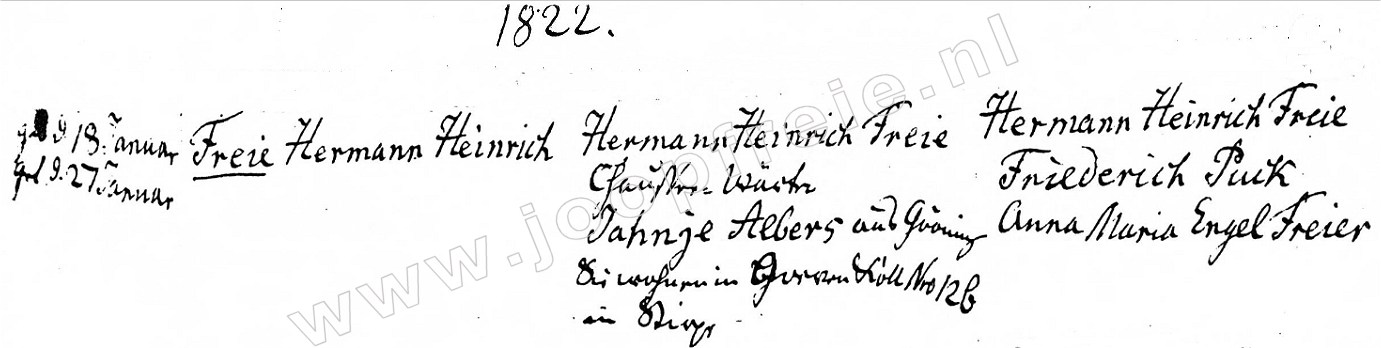 1822.
geb d. 18. Januar
get d. 27 Januar
Freie Hermann Heinrich
Hermann Heinrich Freie
Chaussee Wärter
Jahnje Albers aus Gröning
Sie wohnen in Kott Nro 12b
in Stirpe
Hermann Heinrich Freie
Friederich Puck
Anna Maria Engel Freier
www.joopfreie.nl